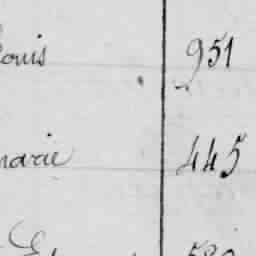 Louis 951
marie 445